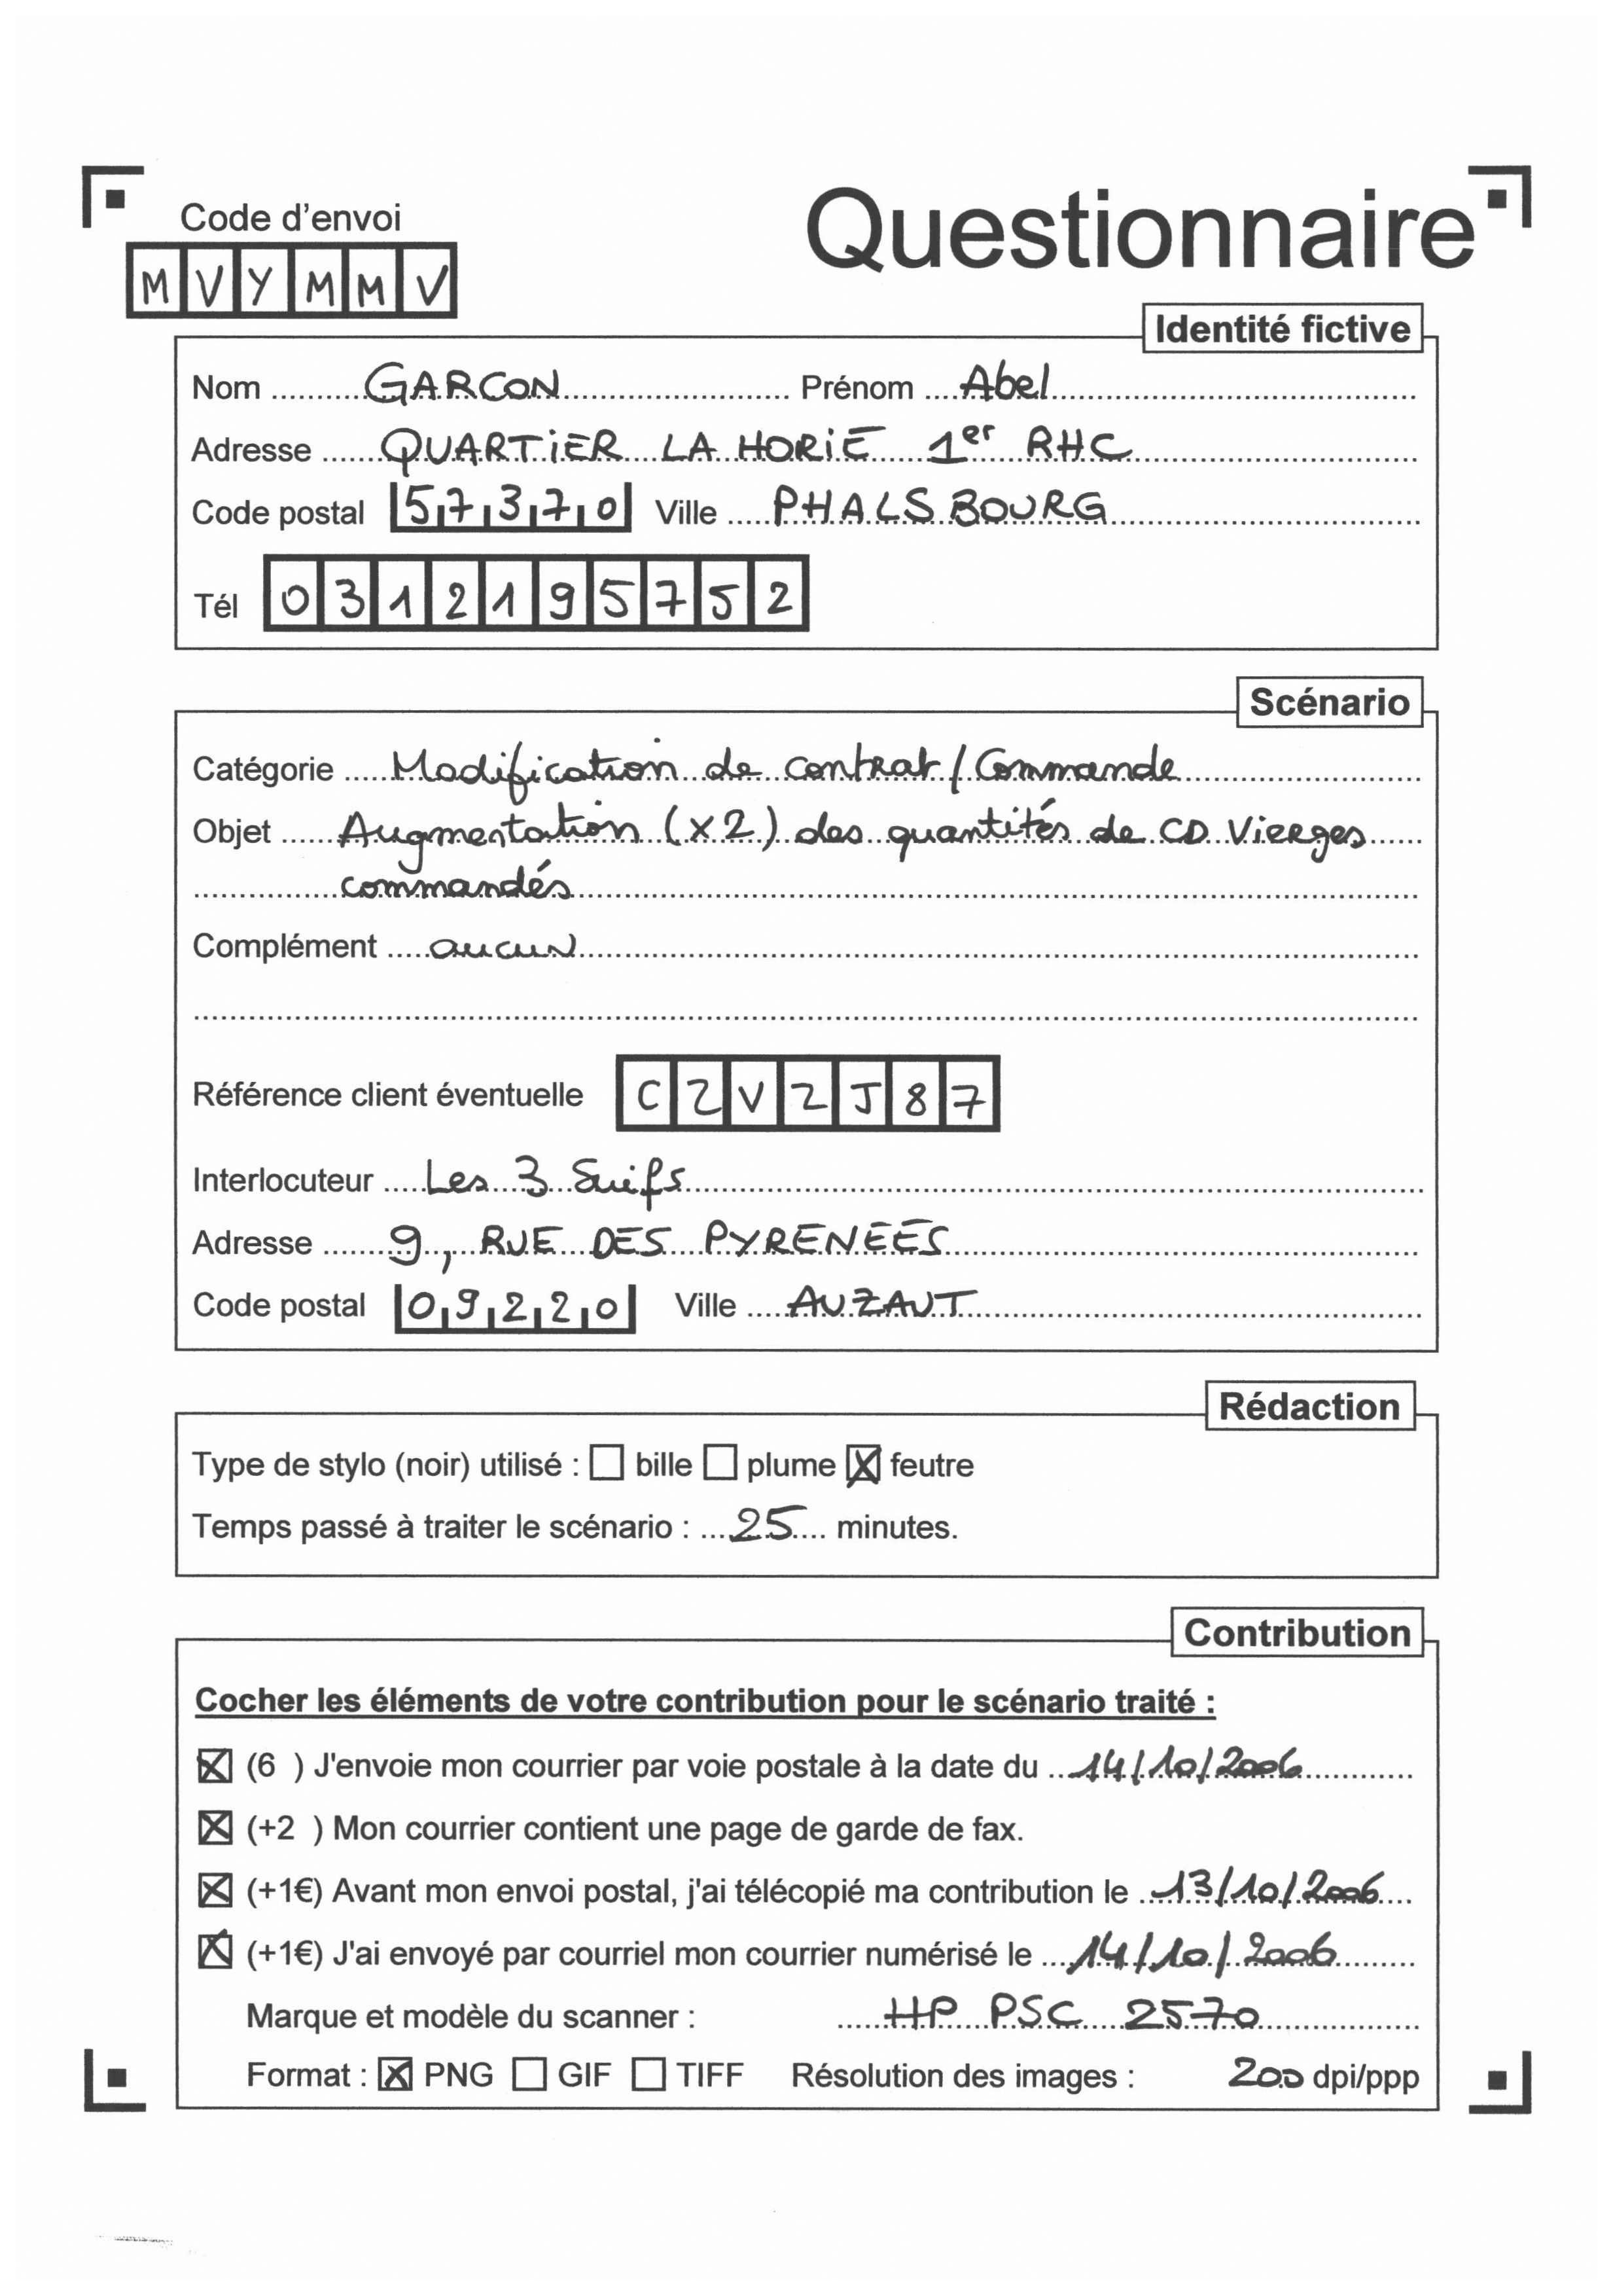 Code d'envoi
Questionnaire
M V Y M M V
Identité fictive
Nom GARCON Prénom Abel
Adresse QUARTIER LA HORIE 1er RHC
Code postal 57370 Ville PHALSBOURG
Tél 0312195752
Scénario
Catégorie Modification de contrat / Commande
Objet Augmentation (x2) des quantités de CD Vierges
commandés
Complément aucun
Référence client éventuelle CZV2J87
Interlocuteur Les 3 Suifs
Adresse 9, RUE DES PYRENEES
Code postal 09220 Ville AUZAUT
Rédaction
Type de stylo (noir) utilisé : ☐ bille ☐ plume ☒ feutre
Temps passé à traiter le scénario : 25 minutes.
Contribution
Cocher les éléments de votre contribution pour le scénario traité :
☒ (6 ) J'envoie mon courrier par voie postale à la date du 14/10/2006
☒ (+2 ) Mon courrier contient une page de garde de fax.
☒ (+1€) Avant mon envoi postal, j'ai télécopié ma contribution le 13/10/2006
☒ (+1€) J'ai envoyé par courriel mon courrier numérisé le 14/10/2006
Marque et modèle du scanner : HP PSC 2570
Format : ☒ PNG ☐ GIF ☐ TIFF Résolution des images : 200 dpi/ppp